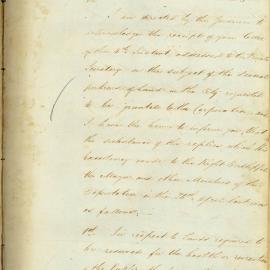 I am directed by the Governor to
acknowledge the receipt of your letter
of the 4th Instant, addressed to the Private
Secretary on the subject of the several
portions of Land in the City requested
to be granted to the Corporation, and
I have the honor to inform you, that
the substance of the replies which His
Excellency made to the Right Worshipful
the Mayor and other Members of the
Deputation on the April last was
as follows:—
1st In respect to Lands required to
be reserved for the health or recreation
of the